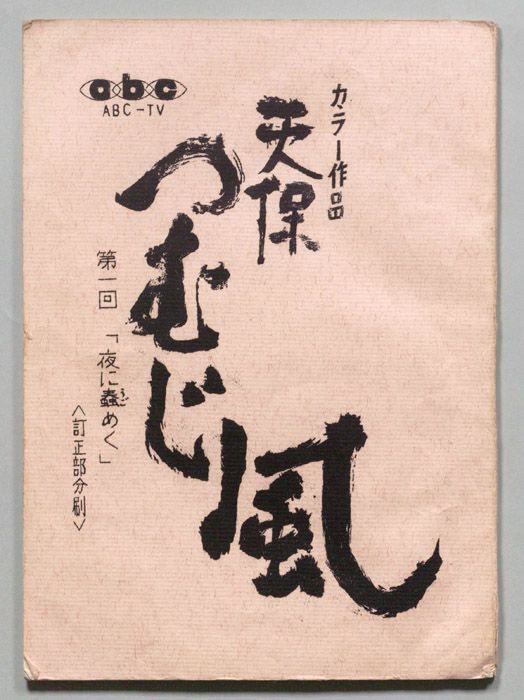 abc
ABC-TV
カラー作品
天保
つむじ風
第一回「夜に蠢めく」
うご
〈訂正部分刷〉